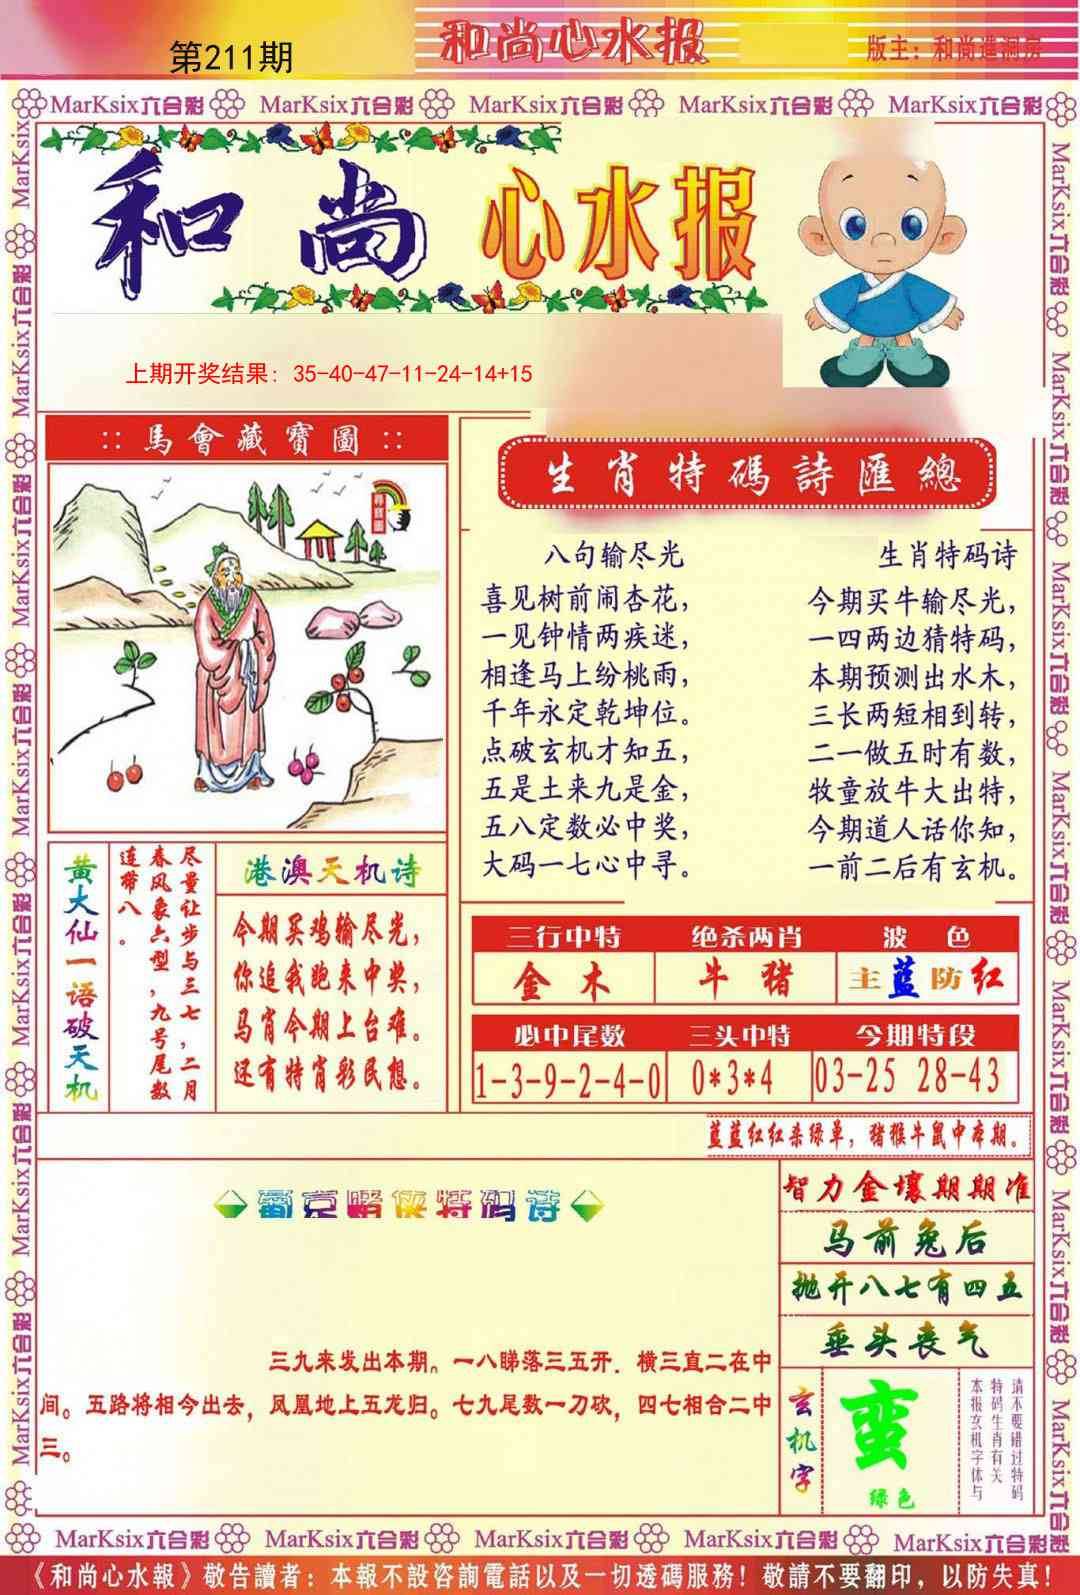 第211期
和尚心水报
版主：和尚進洞房
MarKsix六合彩 MarKsix六合彩 MarKsix六合彩 MarKsix六合彩 MarKsix六合彩
和尚 心水报
上期开奖结果: 35-40-47-11-24-14+15
::馬會藏寶圖::
生肖特碼詩匯總
八句输尽光
喜见树前闹杏花，
一见钟情两疾迷，
相逢马上纷桃雨，
千年永定乾坤位。
点破玄机才知五，
五是土来九是金，
五八定数必中奖，
大码一七心中寻。
生肖特码诗
今期买牛输尽光，
一四两边猜特码，
本期预测出水木，
三长两短相到转，
二一做五时有数，
牧童放牛大出特，
今期道人话你知，
一前二后有玄机。
黄大仙一语破天机
尽量让步与三七，二月
春风象六型，九号尾数
连带八。
港澳天机诗
今期买鸡输尽光，
你追我跑来中奖，
马肖今期上台难。
还有特肖彩民想。
三行中特 绝杀两肖 波 色
金 木 牛 猪 主蓝防红
必中尾数 三头中特 今期特段
1-3-9-2-4-0 0*3*4 03-25 28-43
蓝蓝红红杀绿单，猪猴牛鼠中本期。
葡京赌侠特码诗
三九来发出本期。一八睇落三五开．横三直二在中
间。五路将相今出去，凤凰地上五龙归。七九尾数一刀砍，四七相合二中
三。
智力金壤期期准
马前兔后
抛开八七有四五
垂头丧气
玄机字
蛮
绿色
请不要错过特码
特码生肖有关
本报玄机字体与
MarKsix六合彩 MarKsix六合彩 MarKsix六合彩 MarKsix六合彩 MarKsix六合彩
《和尚心水報》敬告讀者：本報不設咨詢電話以及一切透碼服務！敬請不要翻印，以防失真！